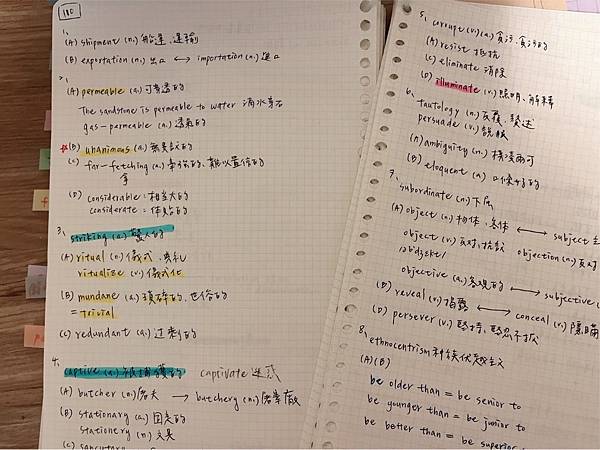 180
1、
(A) shipment (n.) 船運、運輸
(B) exportation (n.) 出口 ←→ importation (n.) 進口
2、
(A) permeable (a.) 可滲透的
The sandstone is permeable to water 滴水專石
gas-permeable (a.) 透氣的
(B) unanimous (a.) 無異議的
(C) far-fetching (a.) 牽強的、難以置信的
牽
(D) considerable：相當大的
considerate：体貼的
3、striking (a.) 驚人的
(A) ritual (n.) 儀式、典礼
ritualize (v.) 儀式化
(B) mundane (a.) 瑣碎的、世俗的
= trivial
(C) redundant (a.) 过剩的
4、captive (a.) 被捕獲的 captivate 迷惑
(A) butcher (n.) 屠夫 → butchery (n.) 屠宰廠
(B) stationary (a.) 固定的
stationery (n.) 文具
(C)
5、corrupt (v.)(a.) 貪污、貪污的
(A) resist 抵抗
(C) eliminate 消除
(D) illuminate (v.) 照明、解釋
6、tautology (n.) 反覆、贅述
persuade (v.) 說服
(A) ambiguity (n.) 模稜兩可
(B) eloquent (a.) 口條好的
7、subordinate (n.) 下屬
(A) object (n.) 物体、客体 ←→ subject 主
object (v.) 反対、抗議 objection (n.) 反対
objective (a.) 客观的 ←→ subjective (
(B) reveal (v.) 揭露 ←→ conceal (v.) 隱瞞
(D) persever (v.) 堅持、堅忍不拔
8、ethnocentrism 种族优越主义
(A)(B)
be older than = be senior to
be younger than = be junior to
be better than = be superior